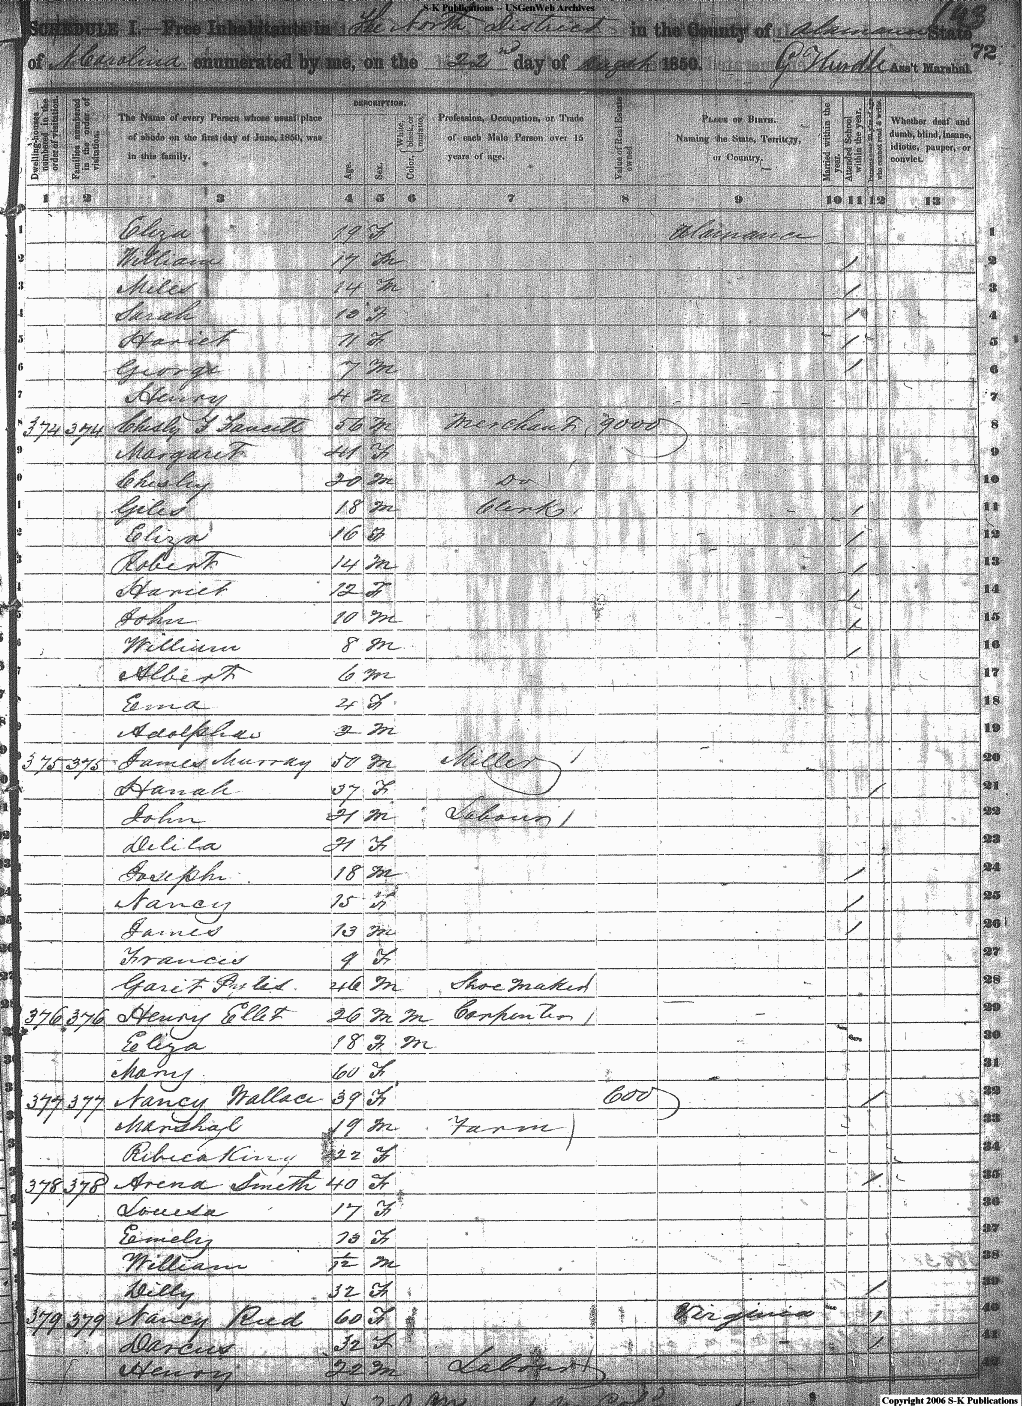 S-K Publications -- USGenWeb Archives
143
SCHEDULE I.—Free Inhabitants in The North District in the County of Alamance State
of N Carolina enumerated by me, on the 22nd day of August 1850. Ass't Marshal. 72
DESCRIPTION.
Dwelling-houses numbered in the order of visitation.
Families numbered in the order of visitation.
The Name of every Person whose usual place of abode on the first day of June, 1850, was in this family.
Age.
Sex.
White, black, or mulatto.
Color,
Profession, Occupation, or Trade of each Male Person over 15 years of age.
Value of Real Estate owned
PLACE OF BIRTH. Naming the State, Territory, or Country.
Married within the year.
Attended School within the year.
Whether deaf and dumb, blind, insane, idiotic, pauper, or convict.
1 2 3 4 5 6 7 8 9 10 11 12 13
1 Eliza 19 F Alamance 1
2 William 17 M / 2
3 Miles 14 M / 3
4 Sarah F / 4
5 Hariet 11 F / 5
6 George 7 M / 6
7 Henry 4 M 7
8 374 374 Chesly F Faucett 56 M Merchant 9000 8
9 Margaret 41 F 9
Chesley 20 M Do 10
Giles 18 M Clerk / 11
Eliza 16 F / 12
Robert 14 M / 13
Hariet 12 F / 14
John 10 M / 15
William 8 M / 16
Albert 6 M 17
Ema 4 F 18
Adolphus 2 M 19
375 375 James Murray 50 M Miller / 20
Hanah 37 F / 21
John 21 M Labour / 22
Delila 21 F 23
Joseph 18 M / 24
Nancy 15 F / 25
James 13 M / 26
Frances 9 F 27
Garit 46 M Shoe maker 28
376 376 Henry Ellet 26 M M Carpenter / 29
Eliza 18 F M 30
Mary 60 F 31
377 377 Nancy Wallace 39 F 600 / 32
Marshal 19 M Farm 33
Ribeca King 22 F 34
378 378 Arena Smith 40 F / 35
Louesa 17 F 36
Emely 13 F 37
William 1/12 M 38
Dilly 32 F / 39
379 379 Nancy Reed 60 F Virginia / 40
Darcus 32 F / 41
Henry 22 M Labour / 42
Copyright 2006 S-K Publications